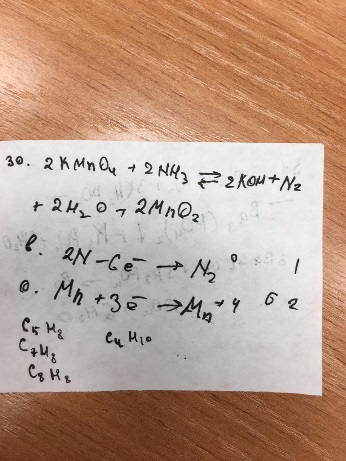 30. 2 KMnO4 + 2NH3 ⇌ 2KOH + N2
+ 2H2O + 2MnO2
в. 2N - 6e⁻ → N2⁰ 1
о. Mn + 3ē → Mn⁺⁴ 6 2
C5H8
C7H8 C4H10
C8H8